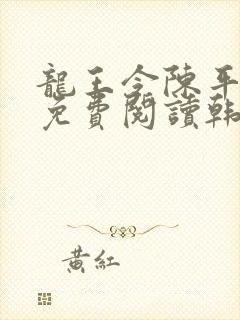 龍王令陳平
免費閱讀韓
黃紅